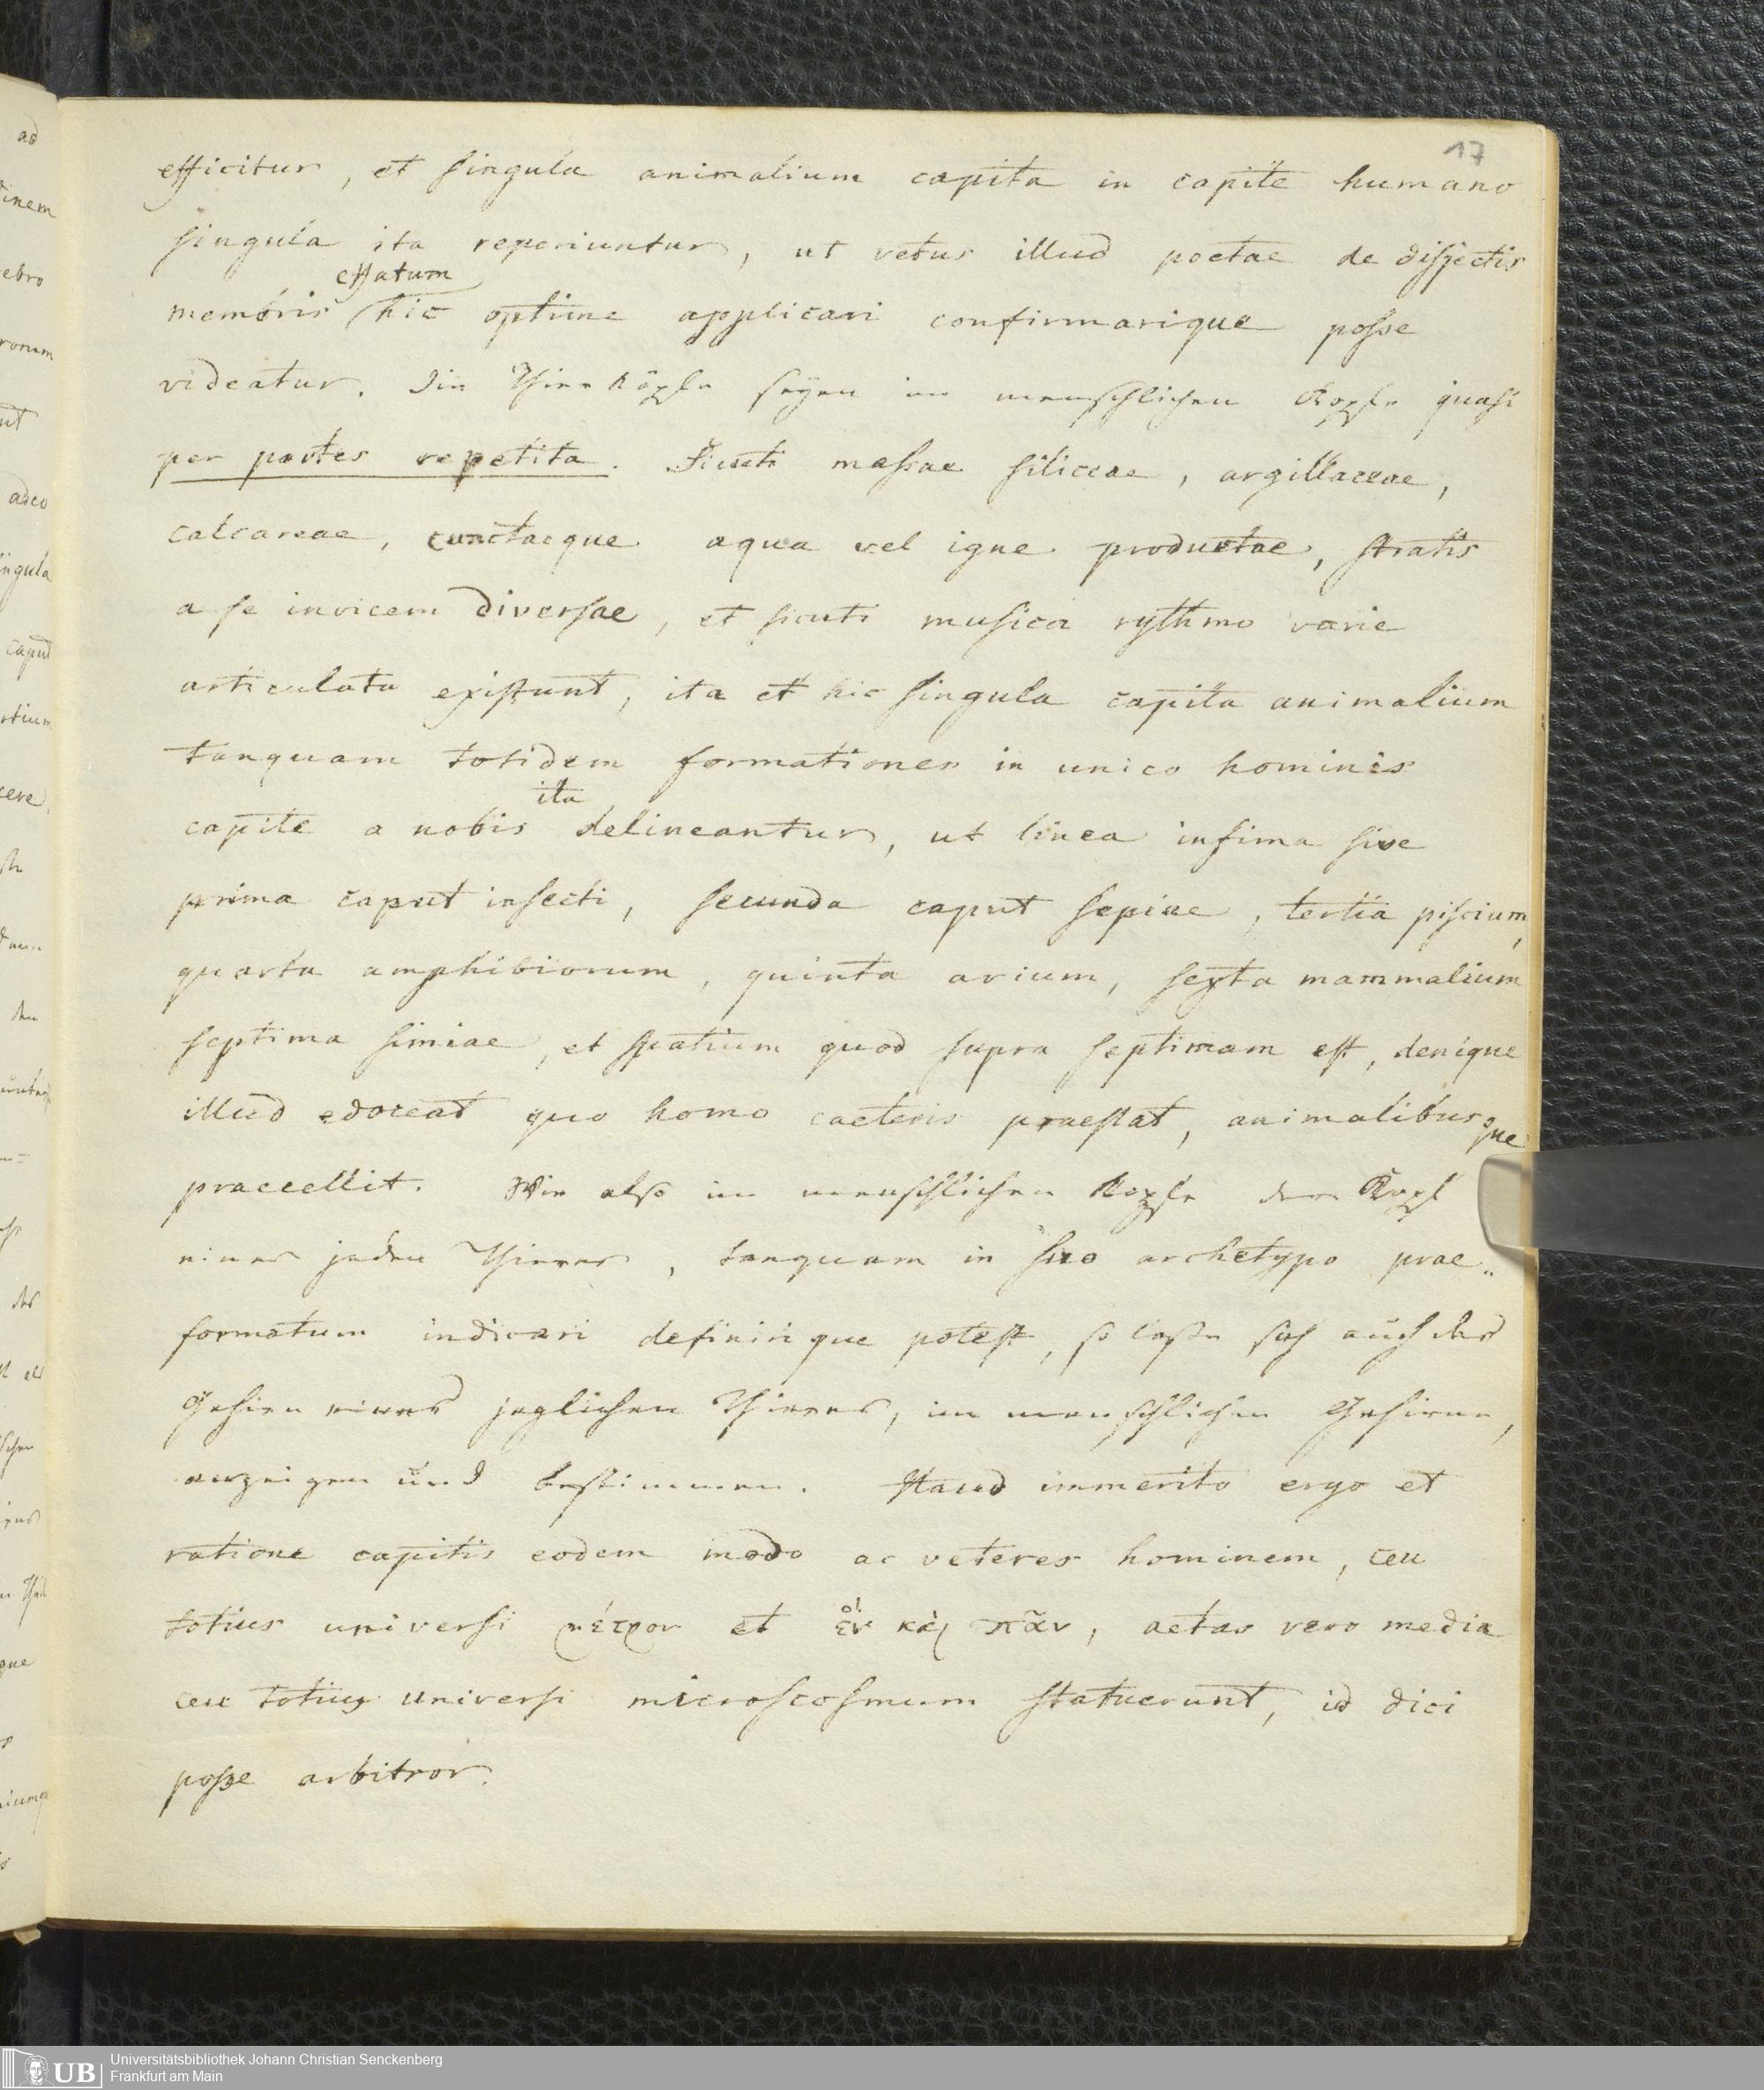 17
efficitur, et singula animalium capita in capite humano
singula ita reperiuntur, ut vetus illud poetae de disjectis
effatum
membris hic optime applicari confirmarique posse
videatur. Die Thierköpfe seyen im menschlichen Kopfe quasi
per partes repetita. Sicuti massae siliceae, argillaceae,
calcareae, cunctaeque aqua vel igne productae, stratis
a se invicem diversae, et sicuti musica rythmo varie
articulata existunt, ita et hic singula capita animalium
tanquam totidem formationes in unico hominis
ita
capite a nobis delineantur, ut linea infima sive
prima caput insecti, secunda caput sepiae, tertia piscium,
quarta amphibiorum, quinta avium, sexta mammalium
septima simiae, et spatium quod supra septimam est, denique
illud edoceat quo homo caeteris praestat, animalibusque
praecellit. Wie also im menschlichen Kopfe der Kopf
eines jeden Thieres, tanquam in suo archetypo prae„
formatum indicari definirique potest, so lasse sich auch das
Gehirn eines jeglichen Thieres, im menschlichen Gehirne,
anzeigen und bestimmen. Haud immerito ergo et
ratione capitis eodem modo ac veteres hominem, ceu
totius universi μέτρον et ἓν καὶ πᾶν, aetas vero media
ceu totius universi microscosmum statuerunt, id dici
posse arbitror.
Universitätsbibliothek Johann Christian Senckenberg
Frankfurt am Main
UB